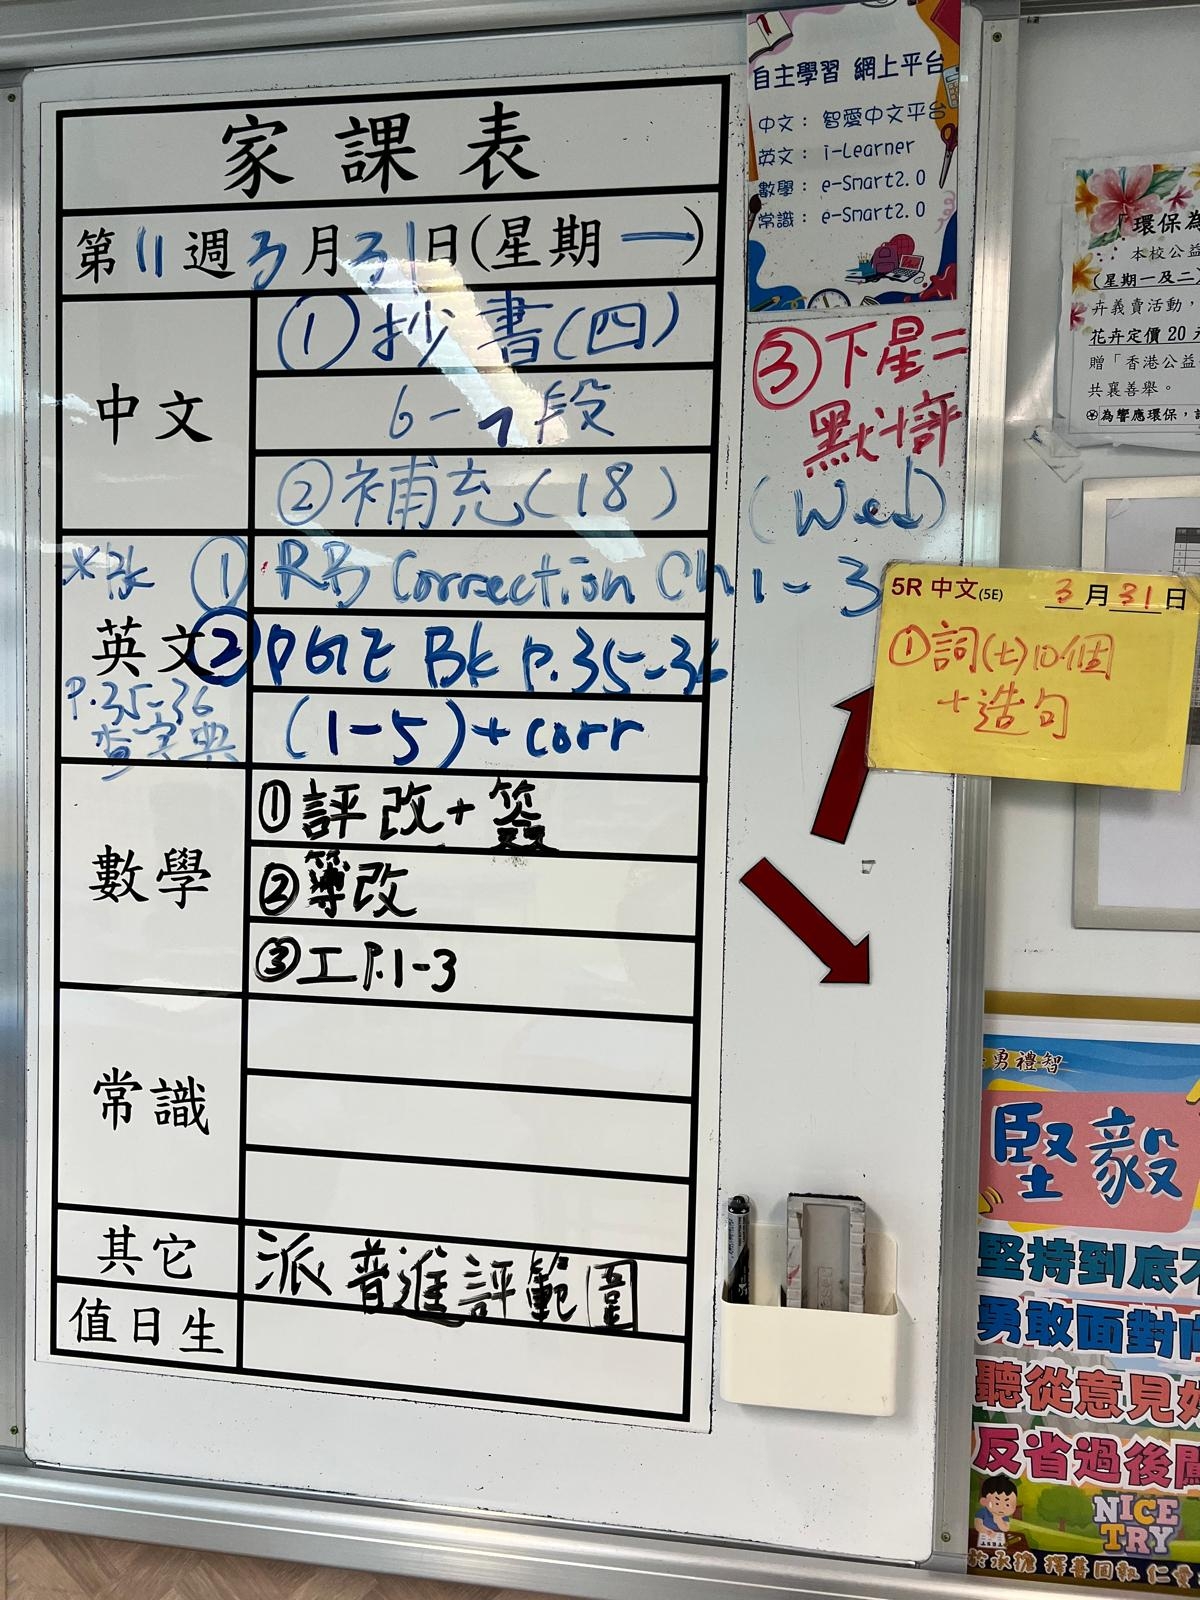 家課表
第11週3月31日(星期一)
中文
①抄書(四)
6-7段
②補充(18)
③下星二
默
(Wed)
英文
① RB Correction Ch 1-3
② PGE Bk P.35-36
(1-5)+corr
P.35-36
查字典
數學
①評改+簽
②簿改
③工P.1-3
常識
其它
派普進評範圍
值日生
自主學習 網上平台
中文： 智愛中文平台
英文： i-Learner
數學： e-Smart2.0
常識： e-Smart2.0
5R 中文(5E) 3月31日
①詞(七)10個
+造句
「環保為
本校公益
(星期一及二
卉義賣活動，
花卉定價 20
贈「香港公益
共襄善舉。
為響應環保，
勇禮智
堅毅
堅持到底不
勇敢面對
聽從意見
反省過後
NICE
TRY